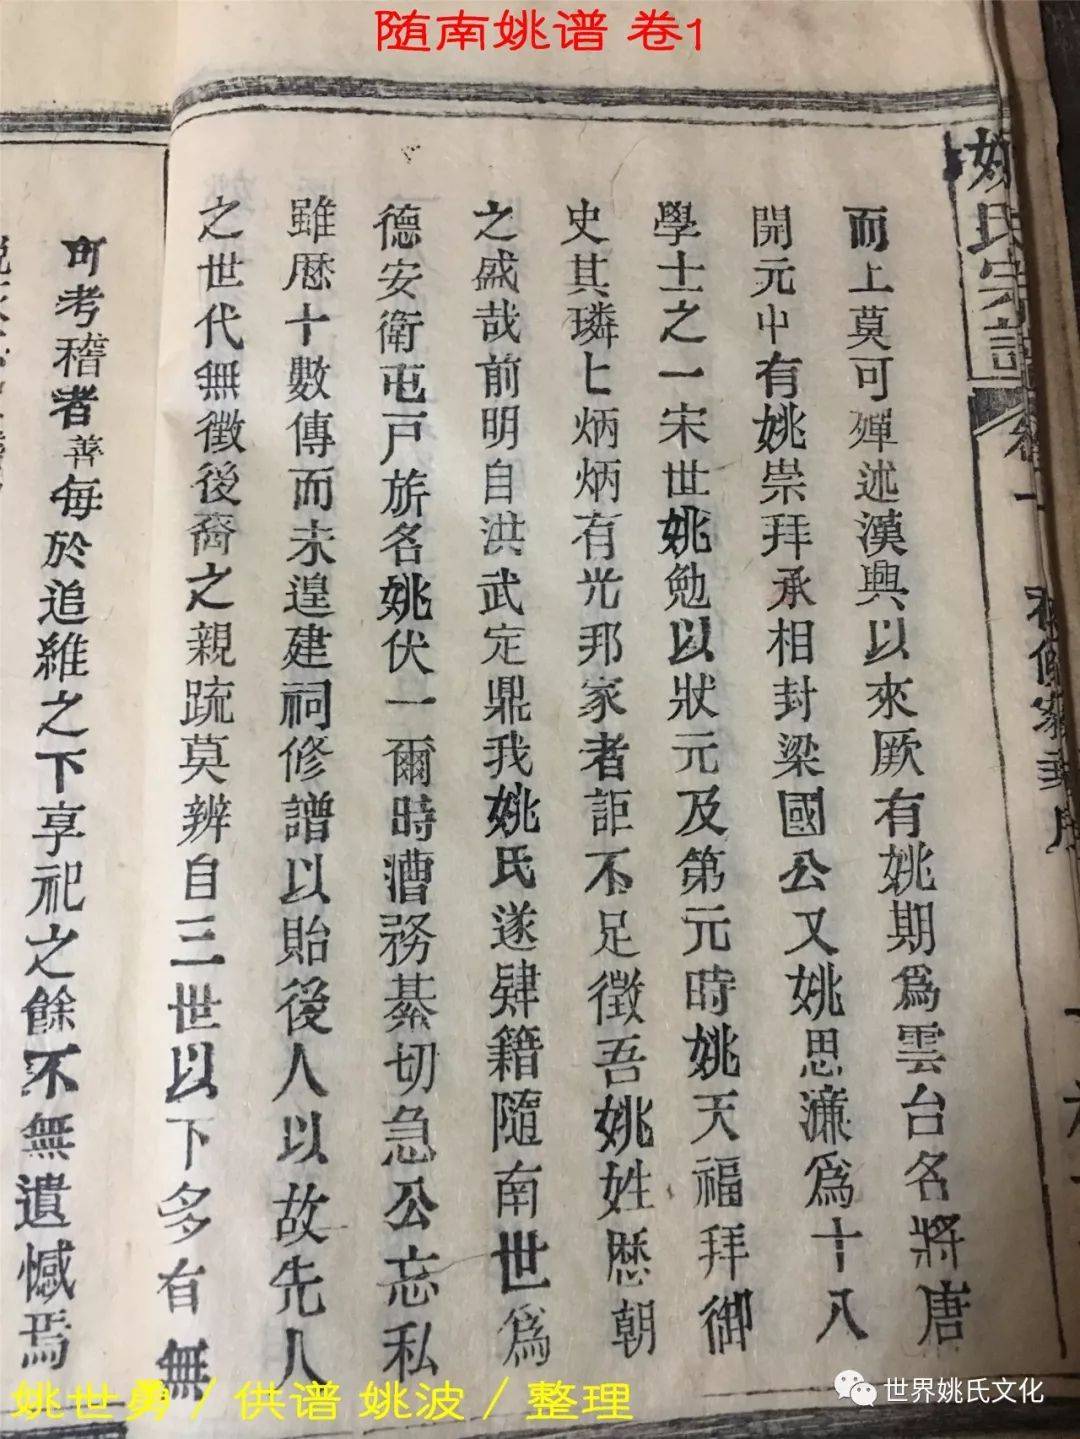 随南姚谱 卷1
姚氏宗譜
而上莫可殫述漢興以來厥有姚期爲雲台名將唐
開元中有姚崇拜承相封梁國公又姚思濂爲十八
學士之一宋世姚勉以狀元及第元時姚天福拜御
史其璘七炳炳有光邦家者詎不足徵吾姚姓歷朝
之盛哉前明自洪武定鼎我姚氏遂肄籍隨南世爲
德安衛屯戸旂名姚伏一爾時漕務綦切急公忘私
雖歷十數傳而未遑建祠修譜以貽後人以故先人
之世代無徵後裔之親䟽莫辨自三世以下多有無
可考稽者善每於追維之下享祀之餘不無遺憾焉
姚世勇／供谱 姚波／整理
世界姚氏文化